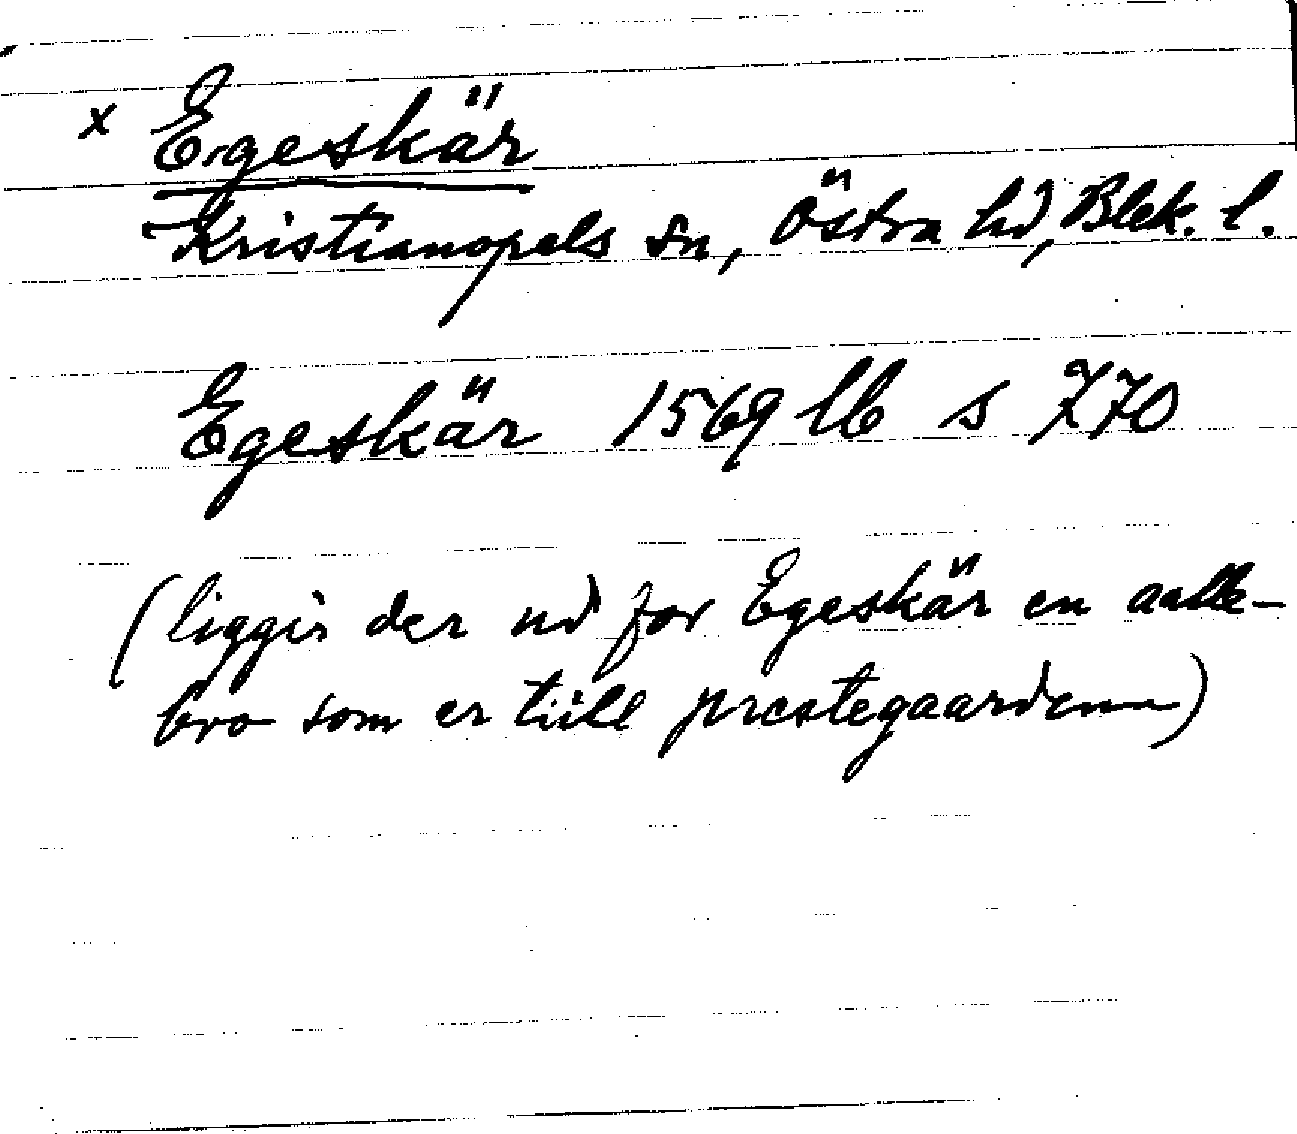 x Egeskär
Kristianopels sn, Östra hd, Blek. l.
Egeskär 1569 lb s 770
(liggir der ud for Egeskär en aalle-
bro som er tiill prestegaarden)